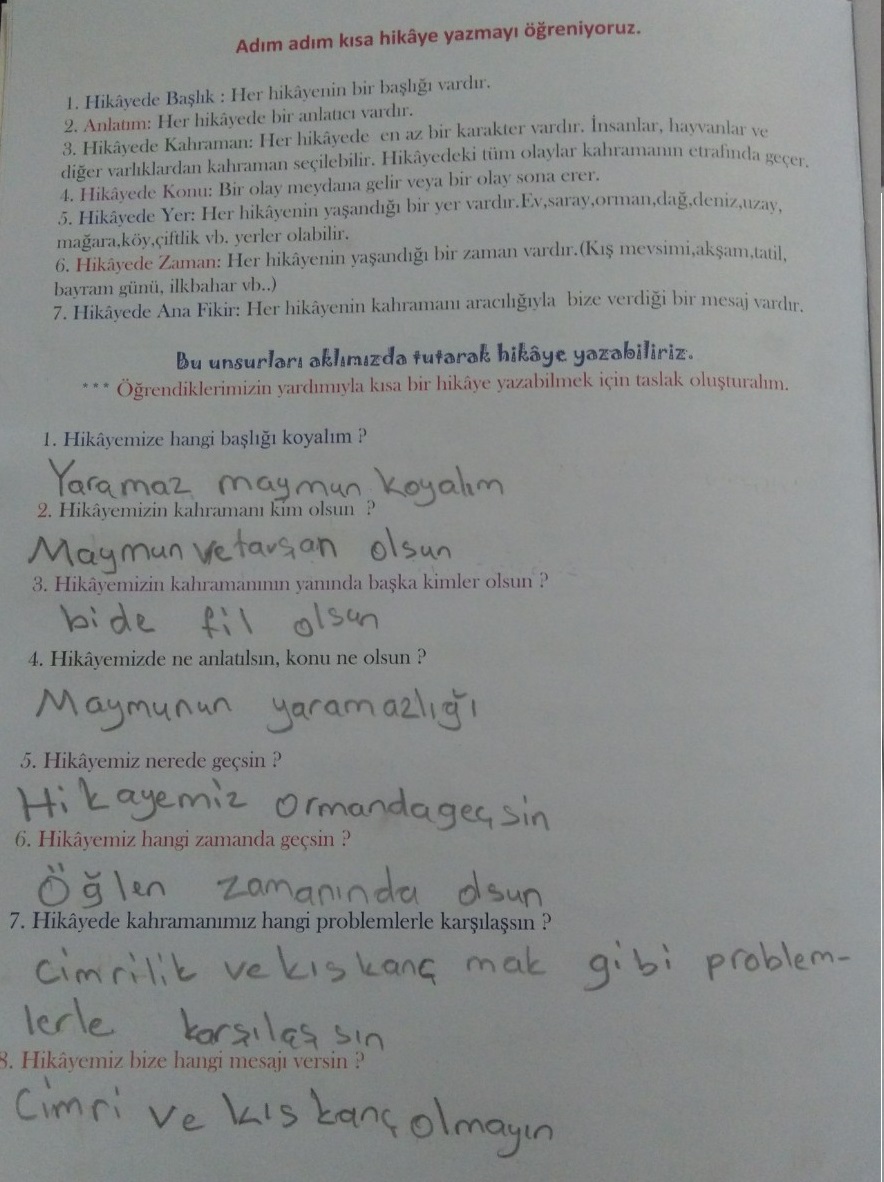 Adım adım kısa hikâye yazmayı öğreniyoruz.
1. Hikâyede Başlık : Her hikâyenin bir başlığı vardır.
2. Anlatım: Her hikâyede bir anlatıcı vardır.
3. Hikâyede Kahraman: Her hikâyede en az bir karakter vardır. İnsanlar, hayvanlar ve
diğer varlıklardan kahraman seçilebilir. Hikâyedeki tüm olaylar kahramanın etrafında geçer.
4. Hikâyede Konu: Bir olay meydana gelir veya bir olay sona erer.
5. Hikâyede Yer: Her hikâyenin yaşandığı bir yer vardır.Ev,saray,orman,dağ,deniz,uzay,
mağara,köy,çiftlik vb. yerler olabilir.
6. Hikâyede Zaman: Her hikâyenin yaşandığı bir zaman vardır.(Kış mevsimi,akşam,tatil,
bayram günü, ilkbahar vb..)
7. Hikâyede Ana Fikir: Her hikâyenin kahramanı aracılığıyla bize verdiği bir mesaj vardır.
Bu unsurları aklımızda tutarak hikâye yazabiliriz.
*** Öğrendiklerimizin yardımıyla kısa bir hikâye yazabilmek için taslak oluşturalım.
1. Hikâyemize hangi başlığı koyalım ?
Yaramaz maymun koyalım
2. Hikâyemizin kahramanı kim olsun ?
Maymun ve tavşan olsun
3. Hikâyemizin kahramanının yanında başka kimler olsun ?
bide fil olsun
4. Hikâyemizde ne anlatılsın, konu ne olsun ?
Maymunun yaramazlığı
5. Hikâyemiz nerede geçsin ?
Hikayemiz ormanda geçsin
6. Hikâyemiz hangi zamanda geçsin ?
Öğlen zamanında olsun
7. Hikâyede kahramanımız hangi problemlerle karşılaşsın ?
cimrilik ve kıskanç mak gibi problem-
lerle karşılaşsın
8. Hikâyemiz bize hangi mesajı versin ?
Cimri ve kıskanç olmayın